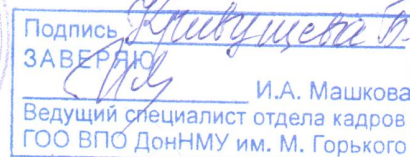 Подпись Кривущева Б.
ЗАВЕРЯЮ
И.А. Машкова
Ведущий специалист отдела кадров
ГОО ВПО ДонНМУ им. М. Горького